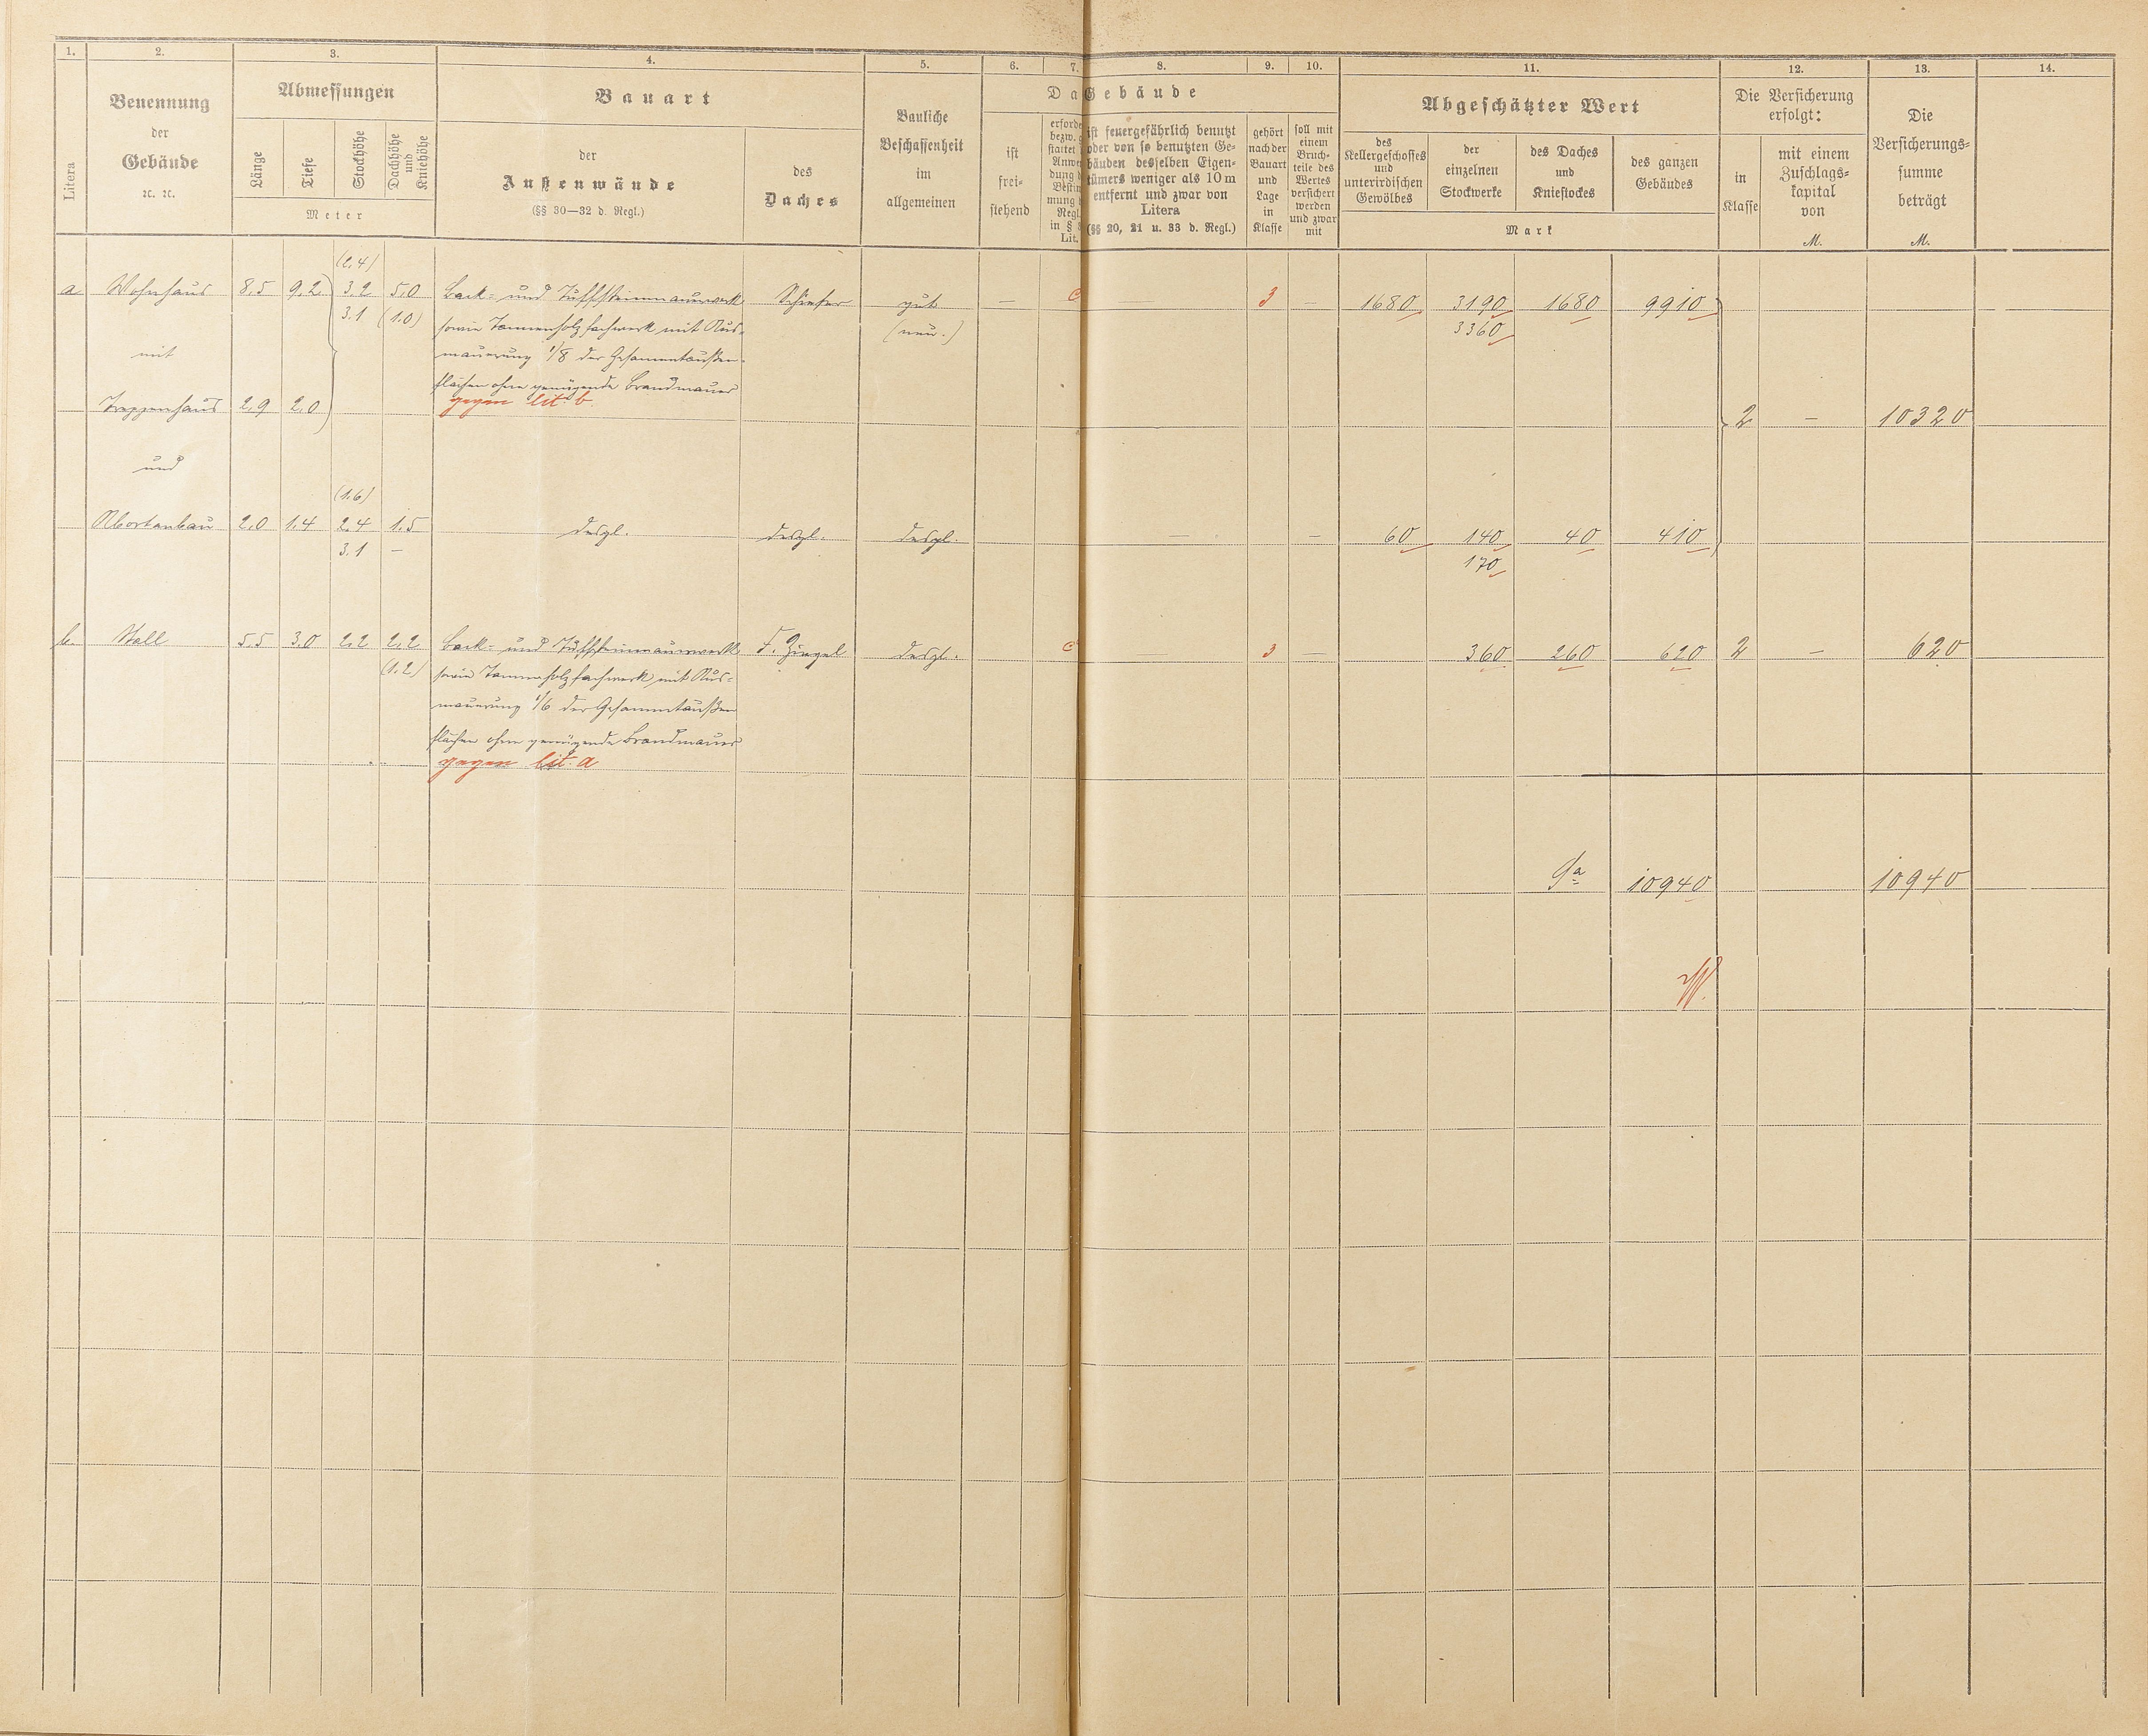 1. 2. 3. 4. 5. 6. 7. 8. 9. 10. 11. 12. 13. 14.
Litera
Benennung
der
Gebäude
ꝛc. ꝛc.
Abmessungen
Länge
Tiefe
Stockhöhe
Dachhöhe
und
Kniehöhe
Meter
Bauart
der
Außenwände
(§§ 30—32 d. Regl.)
des
Daches
Bauliche
Beschaffenheit
im
allgemeinen
Da Gebäude
ist
frei-
stehend
erforde
bezw. g
stattet
Anwen
dung d
Bestim
mung
Regl.
in §
Lit.
ist feuergefährlich benutzt
oder von so benutzten Ge-
bäuden desselben Eigen-
tümers weniger als 10 m
entfernt und zwar von
Litera
(§§ 20, 21 u. 33 d. Regl.)
gehört
nach der
Bauart
und
Lage
in
Klasse
soll mit
einem
Bruch-
teile des
Wertes
versichert
werden
und zwar
mit
Abgeschätzter Wert
des
Kellergeschosses
und
unterirdischen
Gewölbes
der
einzelnen
Stockwerke
des Daches
und
Kniestockes
des ganzen
Gebäudes
Mark
Die Versicherung
erfolgt:
in
Klasse
mit einem
Zuschlags-
kapital
von
M.
Die
Versicherungs-
summe
beträgt
M.
(2,4)
a Wohnhaus 8,5 9,2 3,2 5,0 Back- und Tuffsteinmauerwerk Schiefer gut — c — 3 — 1680 3190 1680 9910
3,1 (1,0) sowie Tannenholzfachwerk mit Aus- (neu.) 3360
mit mauerung 1/8 der Gesammtaußen-
flächen ohne genügende Brandmauer
Treppenhaus 2,9 2,0 gegen lit. b. 2 — 10320
und
(1,6)
Abortanbau 2,0 1,4 2,4 1,5 desgl. desgl. desgl. — — 60 140 40 410
3,1 — 170
b. Stall 5,5 3,0 2,2 2,2 Back- und Tuffsteinmauerwerk F. Ziegel desgl. c — 3 — 360 260 620 2 — 620
(1,2) sowie Tannenholzfachwerk mit Aus-
mauerung 1/6 der Gesammtaußen
flächen ohne genügende Brandmauer
gegen lit. a
Sa 10940 10940